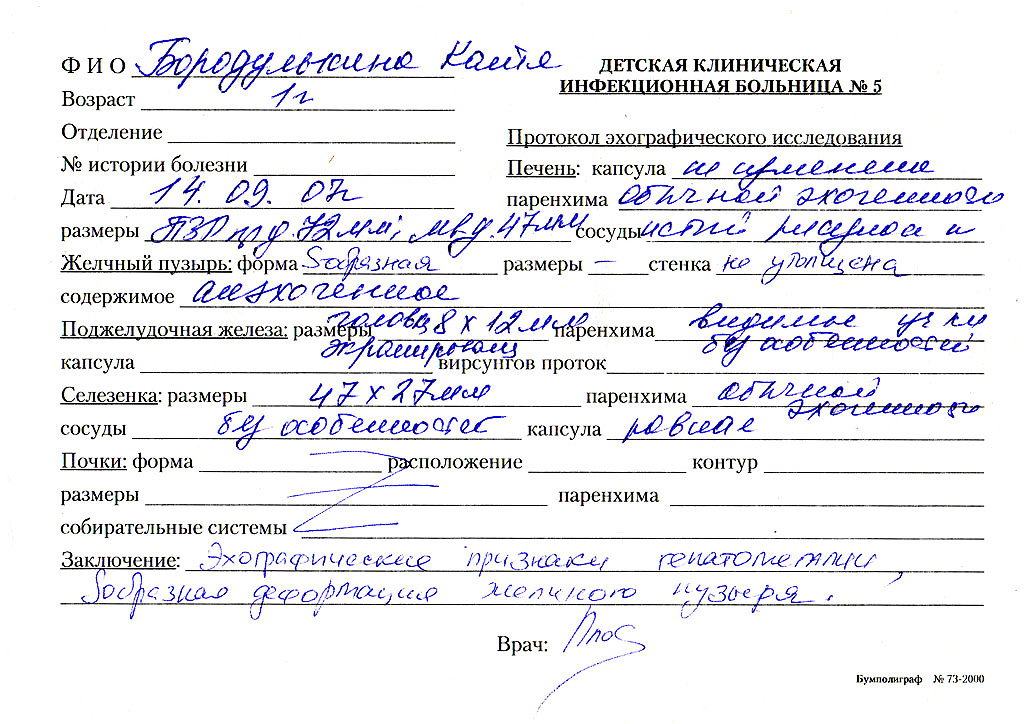 Ф И О Бородулькина Катя
ДЕТСКАЯ КЛИНИЧЕСКАЯ
ИНФЕКЦИОННАЯ БОЛЬНИЦА № 5
Возраст 1г
Отделение
Протокол эхографического исследования
№ истории болезни
Печень: капсула не изменена
Дата 14.09.07г
паренхима обычной эхогенного
размеры ПЗР пр.д. 72мм; лев.д. 47мм сосуды рисунок
Желчный пузырь: форма Sобразная размеры — стенка не утолщена
содержимое анэхогенное
Поджелудочная железа: размеры головка 8 х 12 мм паренхима видимые уч-ки
капсула экранирован вирсунгов проток б/у особенностей
Селезенка: размеры 47 х 27мм паренхима обычной эхогенного
сосуды б/у особенностей капсула ровная
Почки: форма расположение контур
размеры паренхима
собирательные системы
Заключение: Эхографические признаки гепатомегалии,
Sобразная деформация желчного пузыря.
Врач:
Бумполиграф № 73-2000